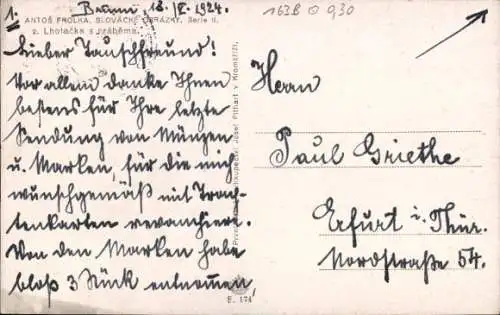 1. Brünn, 18. II. 1924.
ANTOŠ FROLKA, SLOVÁCKÉ OBRÁZKY. Serie II.
2. Lhotačka z
Lieber Tauschfreund!
Vor allem danke Ihnen
bestens für Ihre letzte
Sendung von Münzen
u. Marken, für die mich
wunschgemäß mit Trach-
tenkarten revanchiere.
Von den Marken habe
bloß 3 Stück entnommen,
Josef Pithart v Kroměříži.
E. 174
163B O 930
Herrn
Paul Griethe
Erfurt i. Thür.
Nordstraße 54.